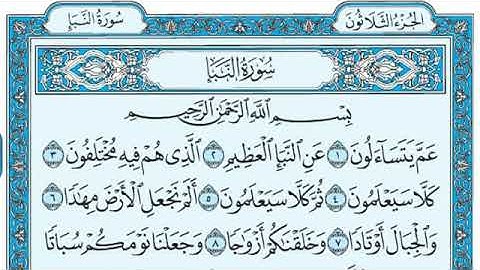 الجُزْءُ الثَّلَاثُونَ سُورَةُ النَّبَإِ
سُورَةُ النَّبَإِ
بِسْمِ اللَّهِ الرَّحْمَٰنِ الرَّحِيمِ
عَمَّ يَتَسَاءَلُونَ ١ عَنِ النَّبَإِ الْعَظِيمِ ٢ الَّذِي هُمْ فِيهِ مُخْتَلِفُونَ ٣
كَلَّا سَيَعْلَمُونَ ٤ ثُمَّ كَلَّا سَيَعْلَمُونَ ٥ أَلَمْ نَجْعَلِ الْأَرْضَ مِهَٰدًا ٦
وَالْجِبَالَ أَوْتَادًا ٧ وَخَلَقْنَٰكُمْ أَزْوَٰجًا ٨ وَجَعَلْنَا نَوْمَكُمْ سُبَاتًا